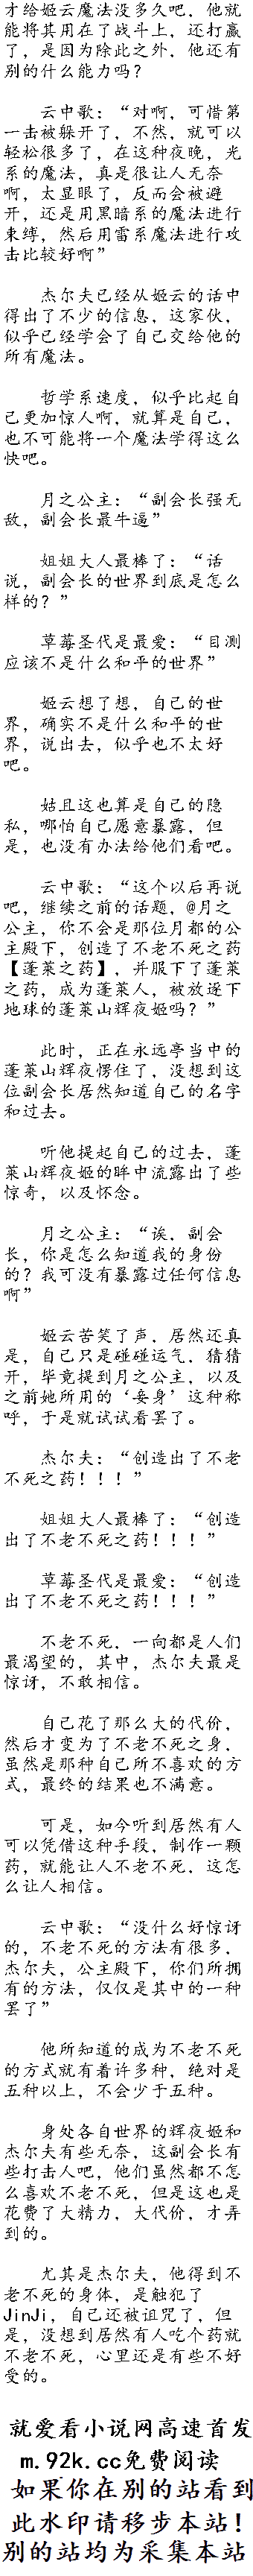 才给姬云魔法没多久吧，他就
能将其用在了战斗上，还打赢
了，是因为除此之外，他还有
别的什么能力吗？
云中歌：“对啊，可惜第
一击被躲开了，不然，就可以
轻松很多了，在这种夜晚，光
系的魔法，真是很让人无奈
啊，太显眼了，反而会被避
开，还是用黑暗系的魔法进行
束缚，然后用雷系魔法进行攻
击比较好啊”
杰尔夫已经从姬云的话中
得出了不少的信息，这家伙，
似乎已经学会了自己交给他的
所有魔法。
哲学系速度，似乎比起自
己更加惊人啊，就算是自己，
也不可能将一个魔法学得这么
快吧。
月之公主：“副会长强无
敌，副会长最牛逼”
姐姐大人最棒了：“话
说，副会长的世界到底是怎么
样的？”
草莓圣代是最爱：“目测
应该不是什么和平的世界”
姬云想了想，自己的世
界，确实不是什么和平的世
界，说出去，似乎也不太好
吧。
姑且这也算是自己的隐
私，哪怕自己愿意暴露，但
是，也没有办法给他们看吧。
云中歌：“这个以后再说
吧，继续之前的话题，@月之
公主，你不会是那位月都的公
主殿下，创造了不老不死之药
【蓬莱之药】，并服下了蓬莱
之药，成为蓬莱人，被放逐下
地球的蓬莱山辉夜姬吗？”
此时，正在永远亭当中的
蓬莱山辉夜愣住了，没想到这
位副会长居然知道自己的名字
和过去。
听他提起自己的过去，蓬
莱山辉夜姬的眸中流露出了些
惊奇，以及怀念。
月之公主：“诶，副会
长，你是怎么知道我的身份
的？我可没有暴露过任何信息
啊”
姬云苦笑了声，居然还真
是，自己只是碰碰运气，猜猜
开，毕竟提到月之公主，以及
之前她所用的‘妾身’这种称
呼，于是就试试看罢了。
杰尔夫：“创造出了不老
不死之药！！！”
姐姐大人最棒了：“创造
出了不老不死之药！！！”
草莓圣代是最爱：“创造
出了不老不死之药！！！”
不老不死，一向都是人们
最渴望的，其中，杰尔夫最是
惊讶，不敢相信。
自己花了那么大的代价，
然后才变为了不老不死之身，
虽然是那种自己所不喜欢的方
式，最终的结果也不满意。
可是，如今听到居然有人
可以凭借这种手段，制作一颗
药，就能让人不老不死，这怎
么让人相信。
云中歌：“没什么好惊讶
的，不老不死的方法有很多，
杰尔夫，公主殿下，你们所拥
有的方法，仅仅是其中的一种
罢了”
他所知道的成为不老不死
的方式就有着许多种，绝对是
五种以上，不会少于五种。
身处各自世界的辉夜姬和
杰尔夫有些无奈，这副会长有
些打击人吧，他们虽然都不怎
么喜欢不老不死，但是这也是
花费了大精力，大代价，才弄
到的。
尤其是杰尔夫，他得到不
老不死的身体，是触犯了
JinJi，自己还被诅咒了，但
是，没想到居然有人吃个药就
不老不死，心里还是有些不好
受的。
就爱看小说网高速首发
m.92k.cc免费阅读
如果你在别的站看到
此水印请移步本站！
别的站均为采集本站